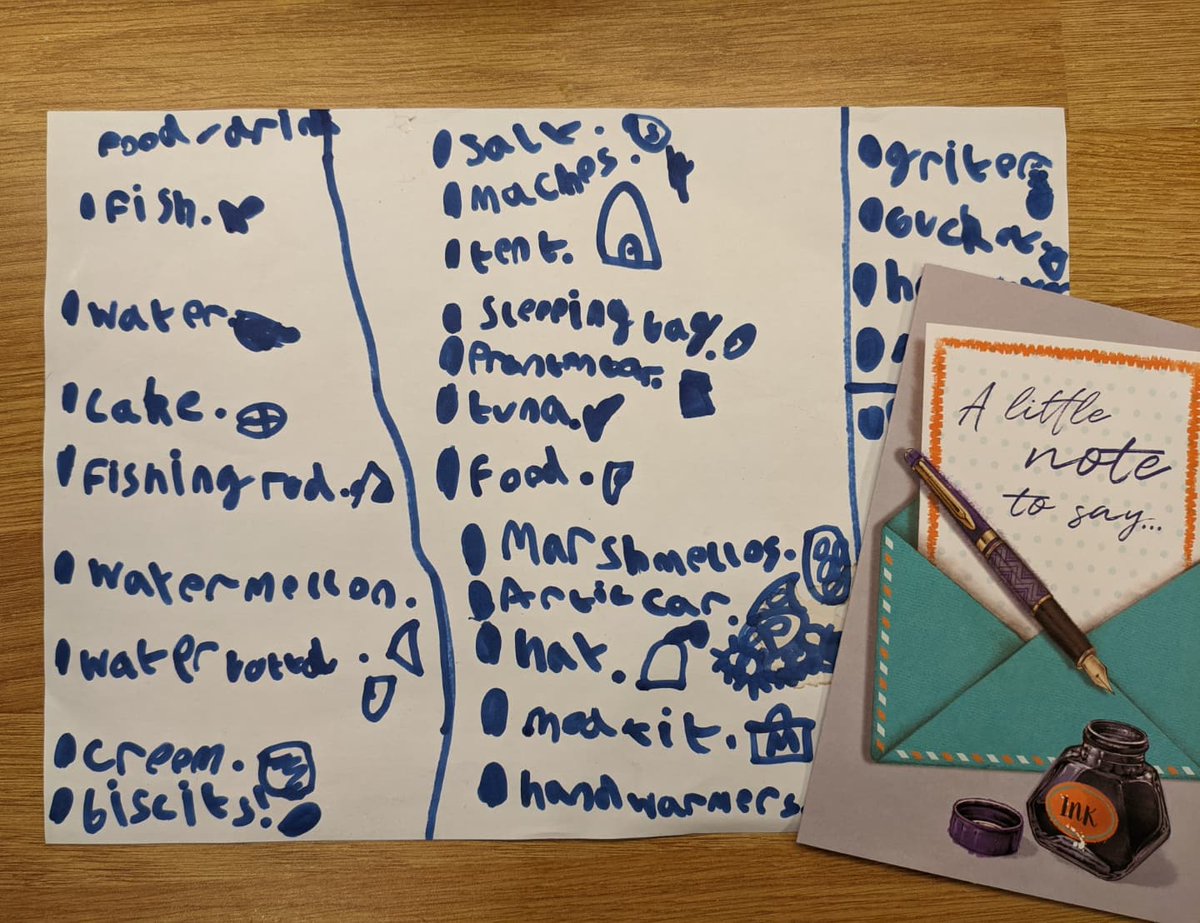 food/drink
fish.
water.
cake.
fishing rod.
watermellon.
water
creem.
biscits!
salt.
maches.
tent.
sleeping bag.
tuna.
food.
Marshmellos.
Artic car.
hat.
med kit.
M
handwarmers.
griter
A little
note
to say...
INK